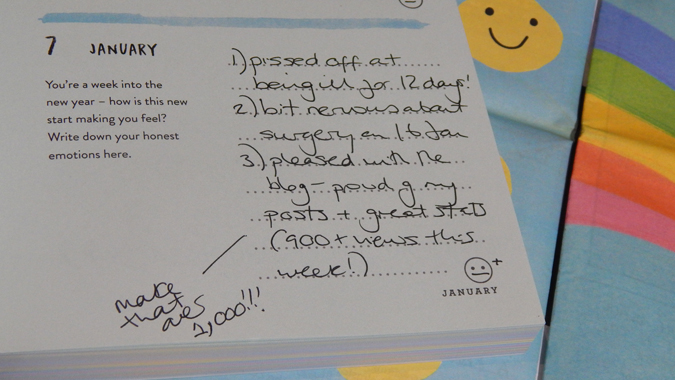 7 JANUARY
You're a week into the
new year – how is this new
start making you feel?
Write down your honest
emotions here.
1.) pissed off at
being ill for 12 days!
2.) bit nervous about
surgery on 16 Jan
3.) pleased with the
blog - proud of my
posts + great stats
(900+ views this
week!)
make
that
over
1,000!!!
+
JANUARY